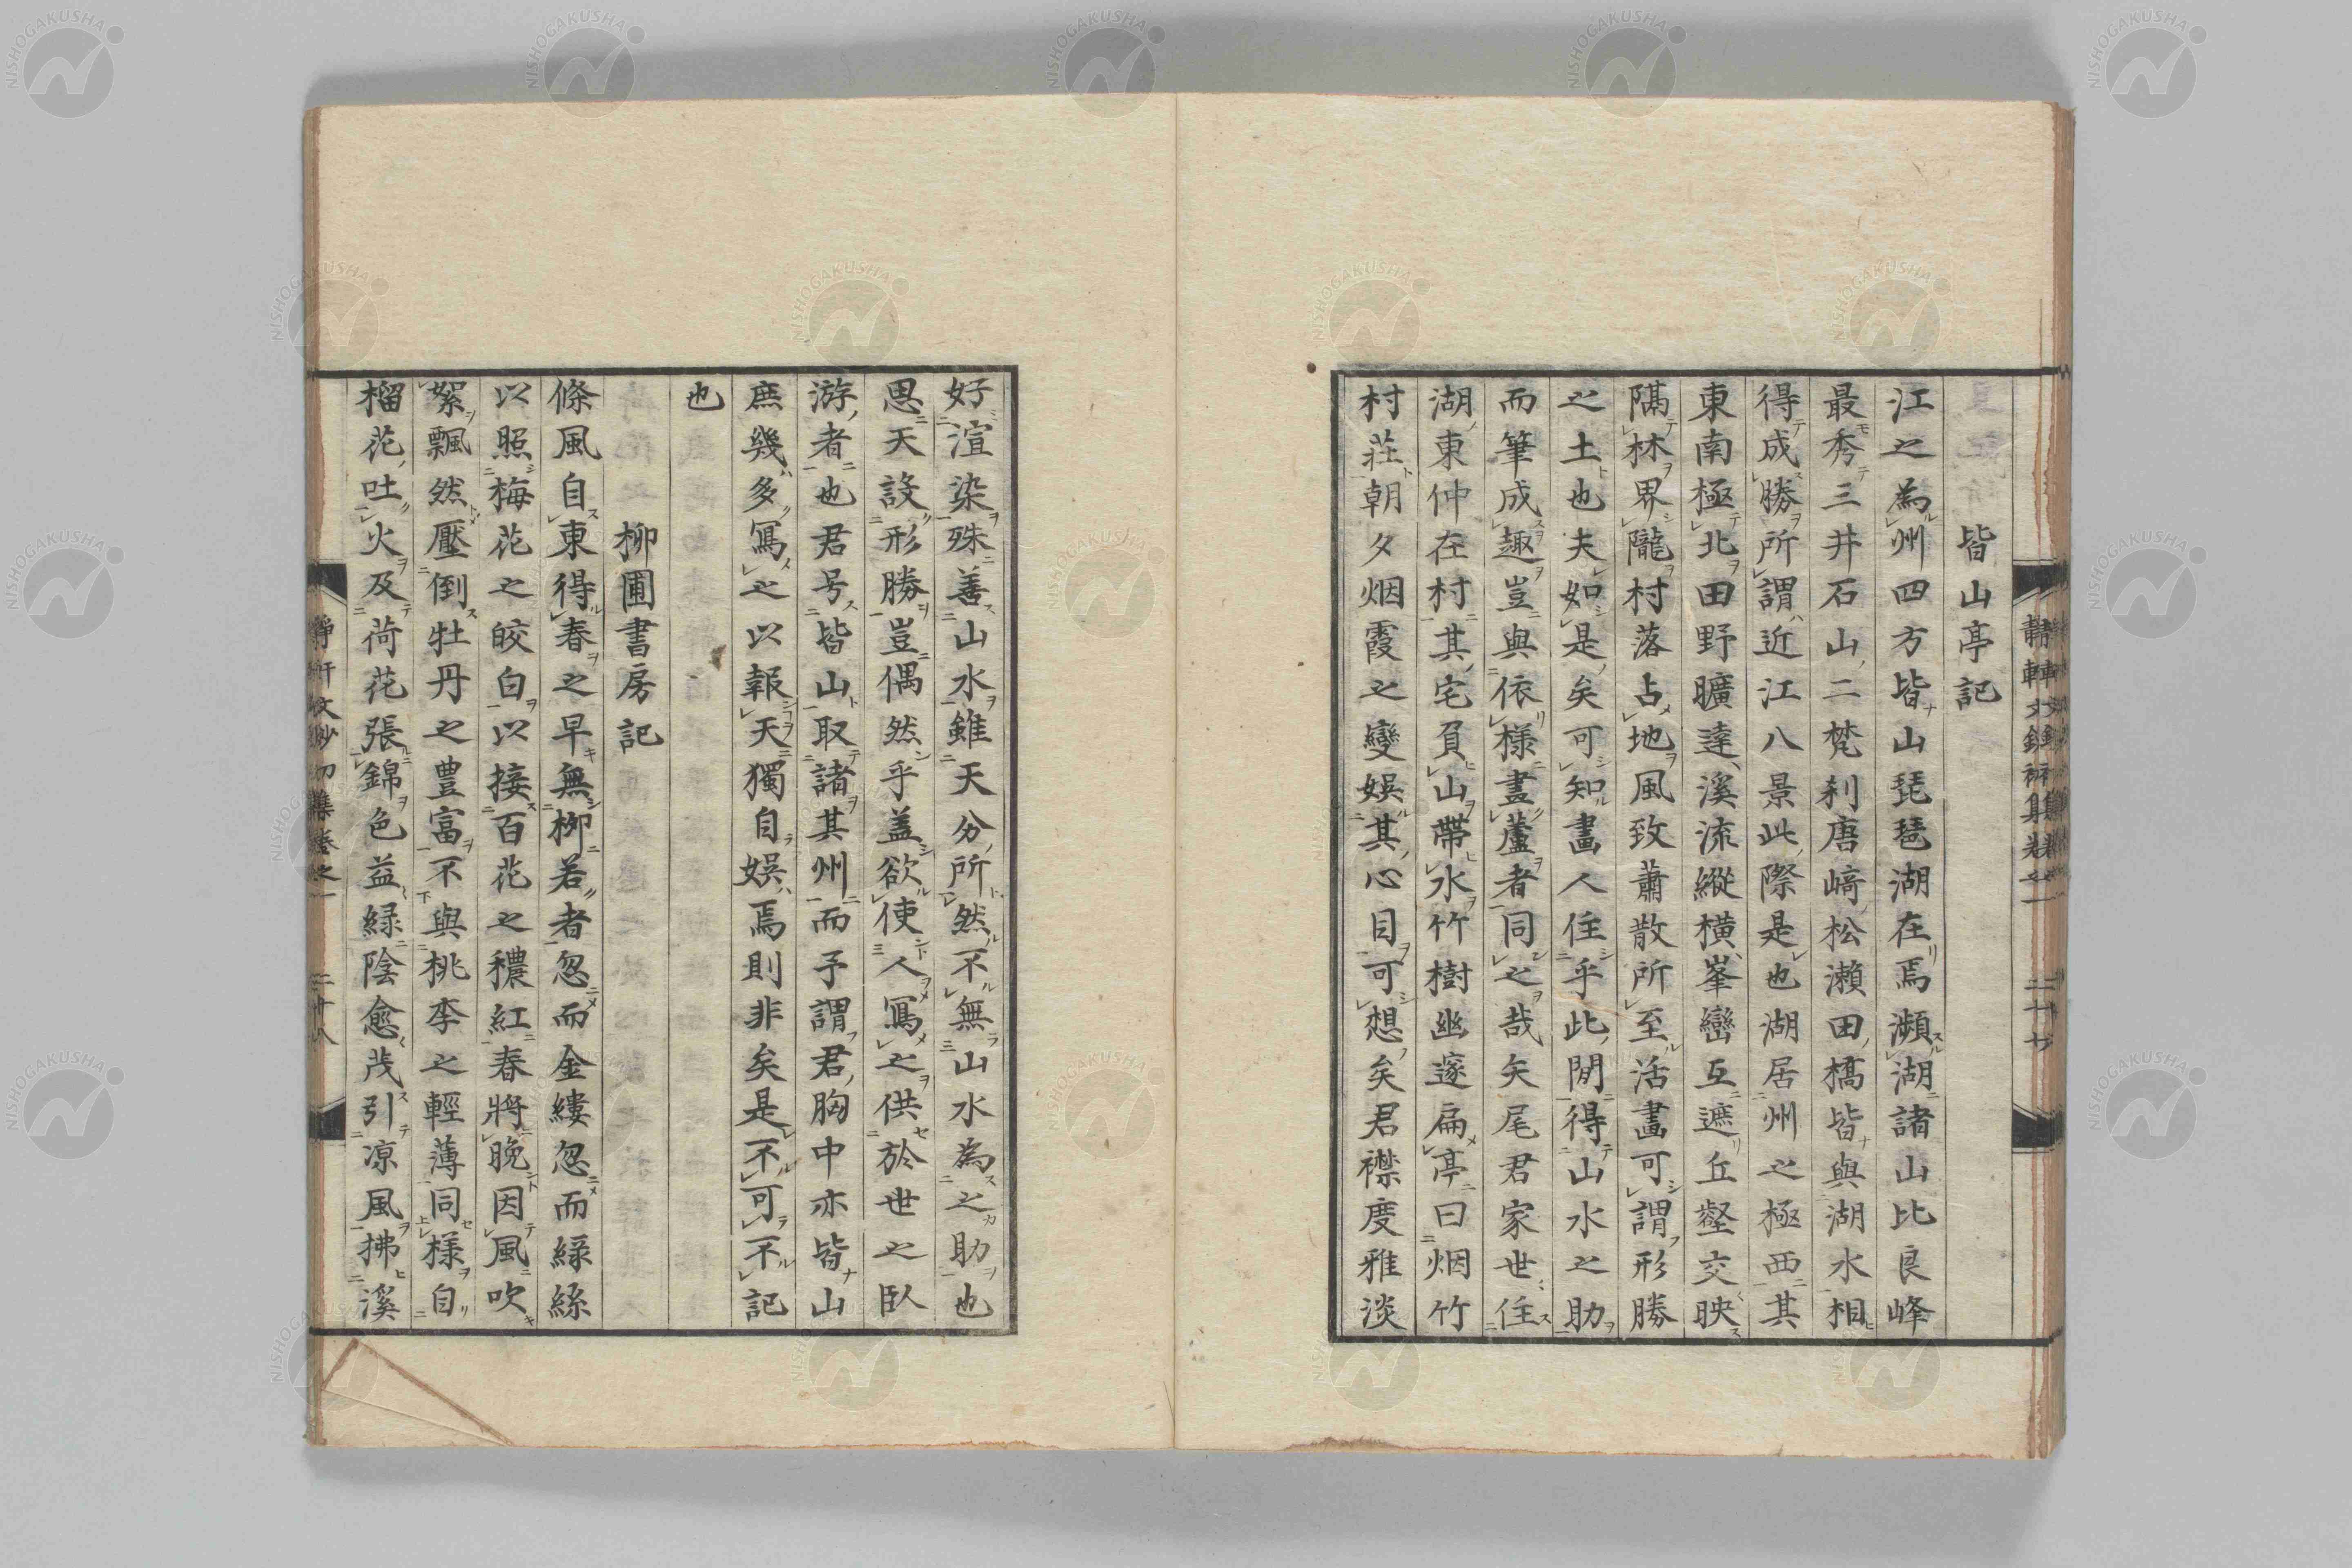 皆山亭記
江之為州四方皆山琵琶湖在焉瀕湖諸山比良峰
最秀三井石山二梵刹唐﨑松瀨田橋皆與湖水相
得成勝所謂近江八景此際是也湖居州之極西其
東南極北田野曠達溪流縱橫峯巒互遮丘壑交映
隔林界隴村落占地風致蕭散所至活畫可謂形勝
之土也夫如是矣可知畫人住乎此間得山水之助
而筆成趣豈與依樣畫蘆者同之哉矣尾君家世住
湖東仲在村其宅負山帶水竹樹幽邃扁亭曰烟竹
村莊朝夕烟霞之變娯其心目可想矣君襟度雅淡
好渲染殊善山水雖天分所然不無山水為之助也
恩天設形勝豈偶然乎蓋欲使人寫之供於世之臥
游者也君号皆山取諸其州而予謂君胸中亦皆山
庶幾多寫之以報天獨自娯焉則非矣是不可不記
也
柳圃書房記
條風自東得春之早無柳若者忽而金縷忽而緑絲
以照梅花之皎白以接百花之穠紅春將晚因風吹
絮飄然壓倒牡丹之豊富不與桃李之輕薄同樣自
榴花吐火及荷花張錦色益緑陰愈茂引凉風拂溪
静軒文鈔初集卷之一
二十八
NISHOGAKUSHA